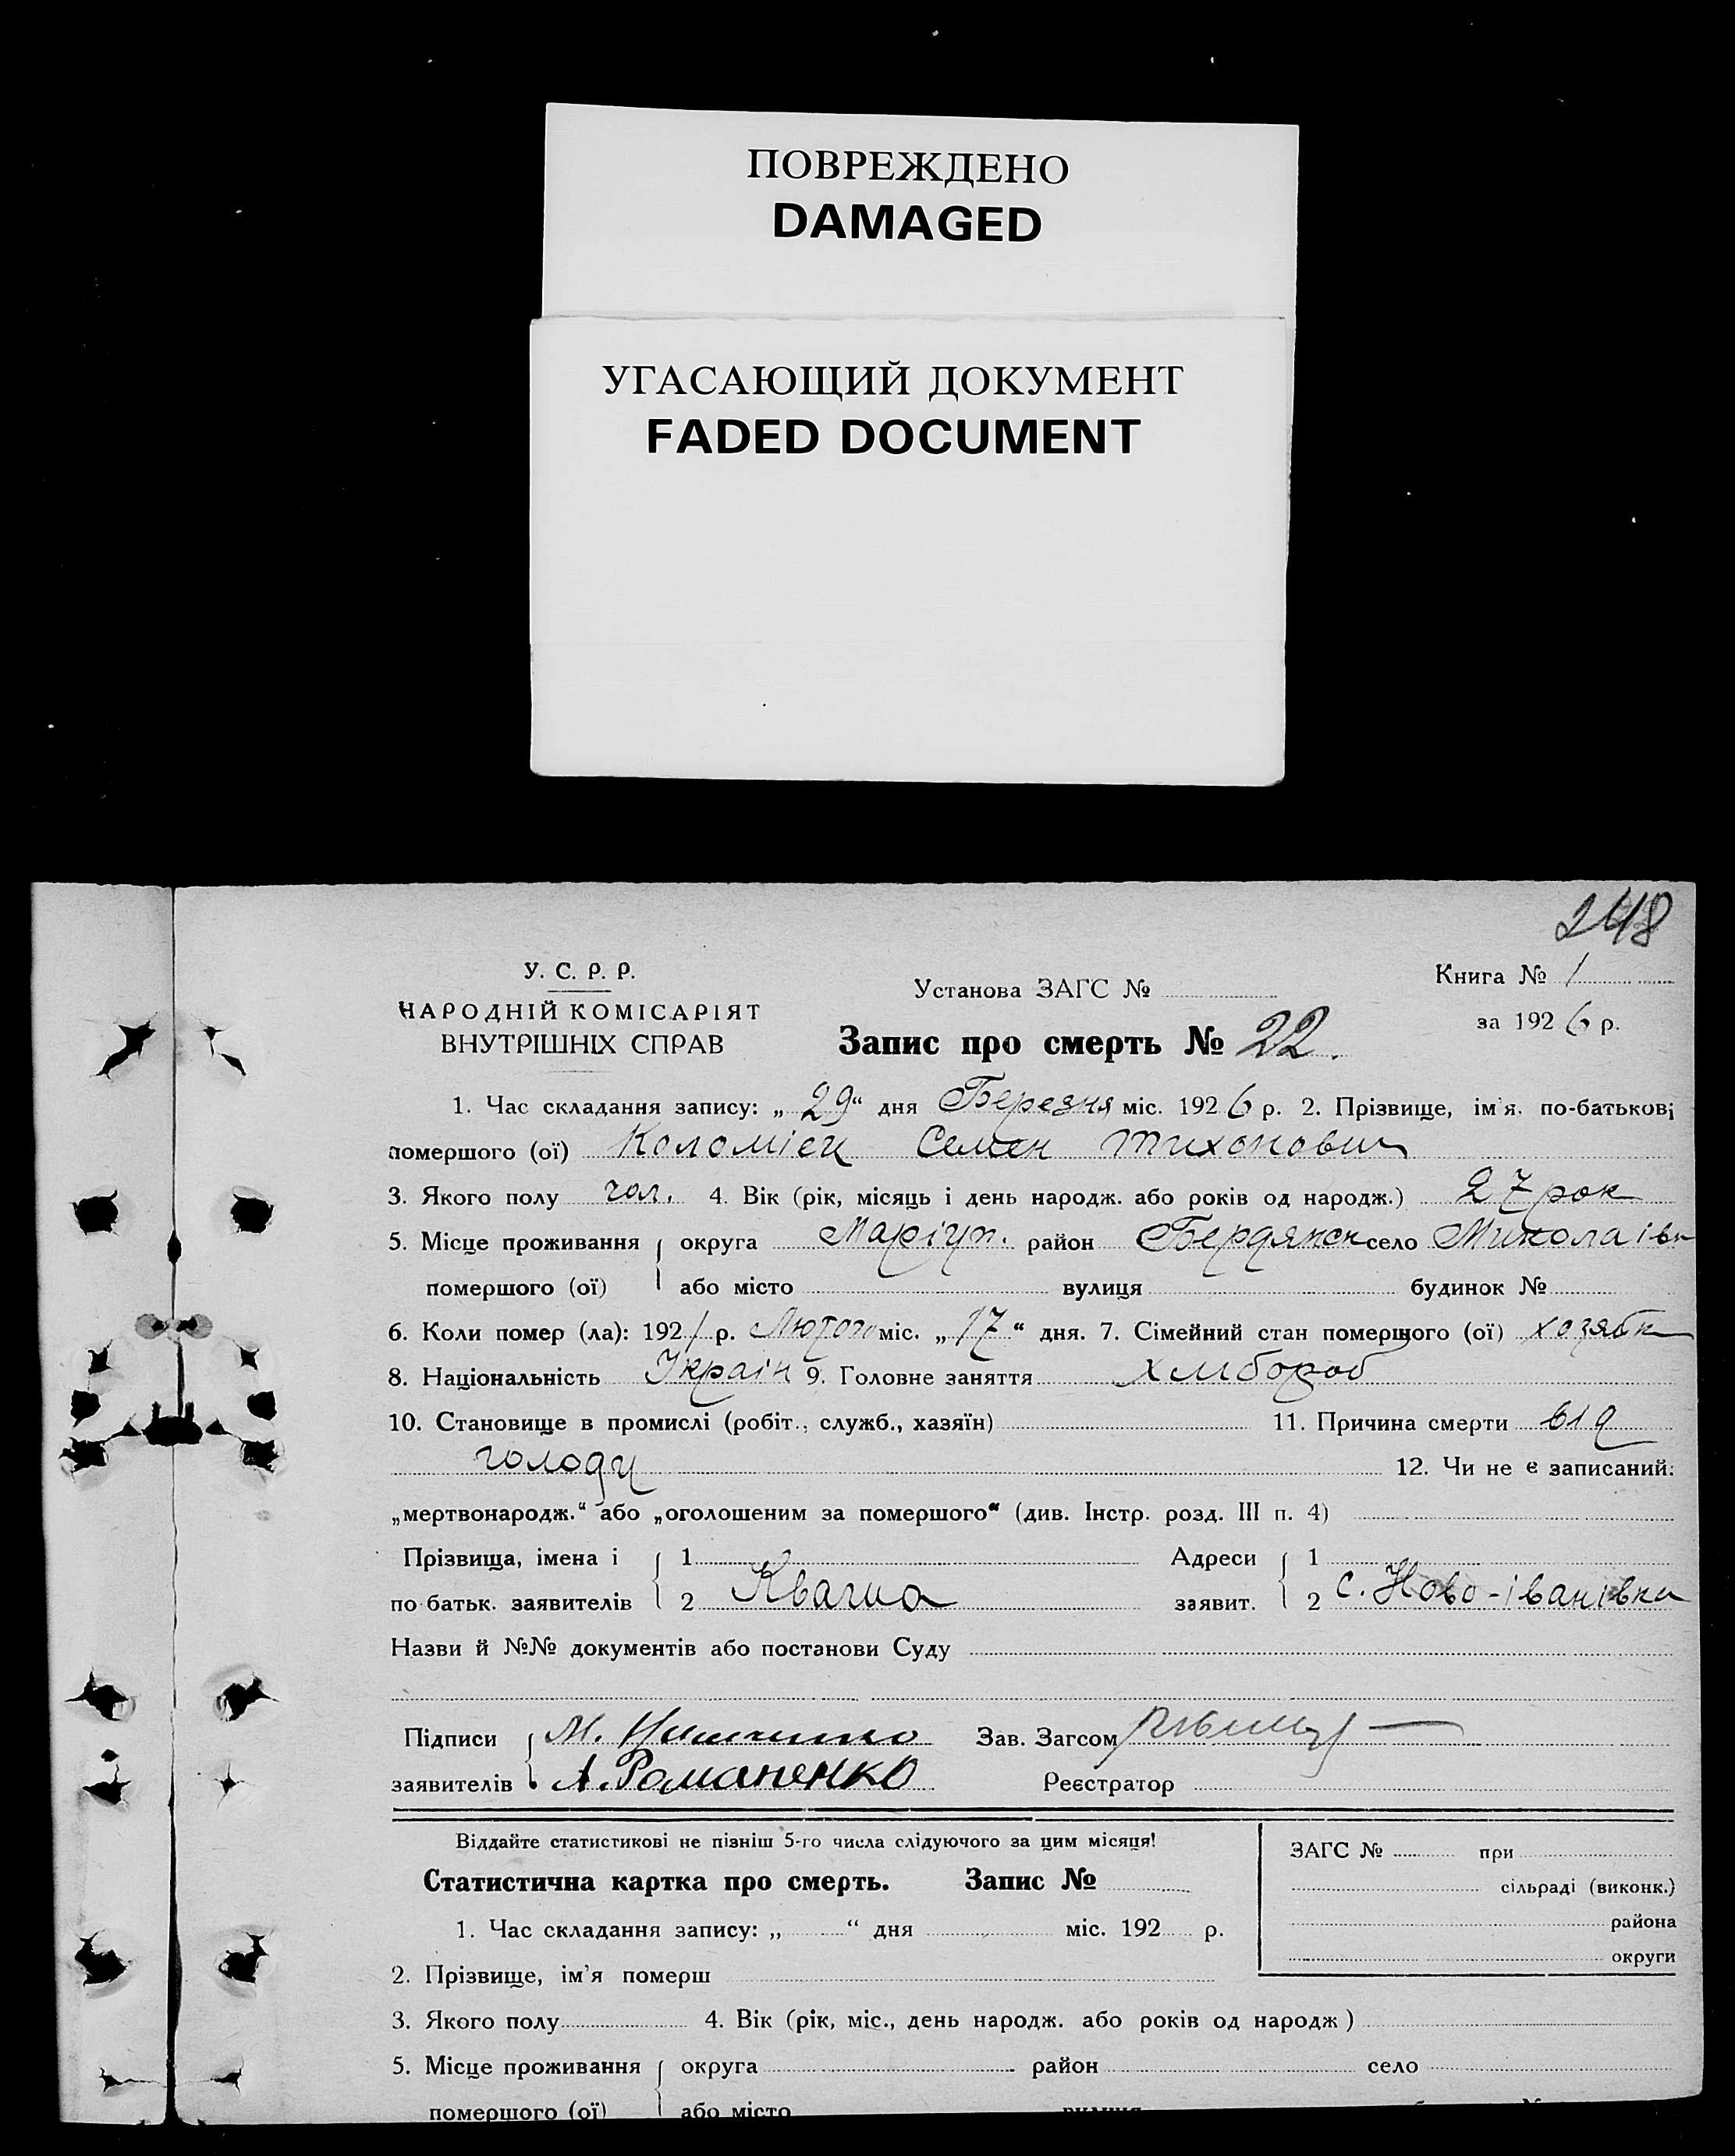 ПОВРЕЖДЕНО
DAMAGED
УГАСАЮЩИЙ ДОКУМЕНТ
FADED DOCUMENT
248
У. С. Р. Р.
НАРОДНІЙ КОМІСАРІЯТ
ВНУТРІШНІХ СПРАВ
Установа ЗАГС №
Книга № 1
за 1926 р.
Запис про смерть № 22.
1. Час складання запису: „29“ дня Березня міс. 1926 р. 2. Прізвище, ім'я, по-батькові
помершого (ої) Коломієц Семен Тихонович
3. Якого полу чол. 4. Вік (рік, місяць і день народж. або років од народж.) 27 рок
5. Місце проживання округа Маріуп. район Бердянск село Миколаівк
помершого (ої) або місто вулиця будинок №
6. Коли помер (ла): 1921 р. Лютого міс. „17“ дня. 7. Сімейний стан помершого (ої)
8. Національність Украін 9. Головне заняття хлібороб
10. Становище в промислі (робіт., служб., хазяїн) 11. Причина смерти від
голоду 12. Чи не є записаний:
„мертвонародж.“ або „оголошеним за помершого“ (див. Інстр. розд. III п. 4)
Прізвища, імена і 1 Адреси 1
по-батьк. заявителів 2 Квагиа заявит. 2 с. Ново-іванівка
Назви й №№ документів або постанови Суду
Підписи М. Зав. Загсом
заявителів А. Романенко Реєстратор
Віддайте статистикові не пізніш 5-го числа слідуючого за цим місяця!
Статистична картка про смерть. Запис №
ЗАГС № при
сільраді (виконк.)
района
округи
1. Час складання запису: „ “ дня міс. 192 р.
2. Прізвище, ім'я померш
3. Якого полу 4. Вік (рік, міс., день народж. або років од народж)
5. Місце проживання округа район село
помершого (ої) або місто вулиця